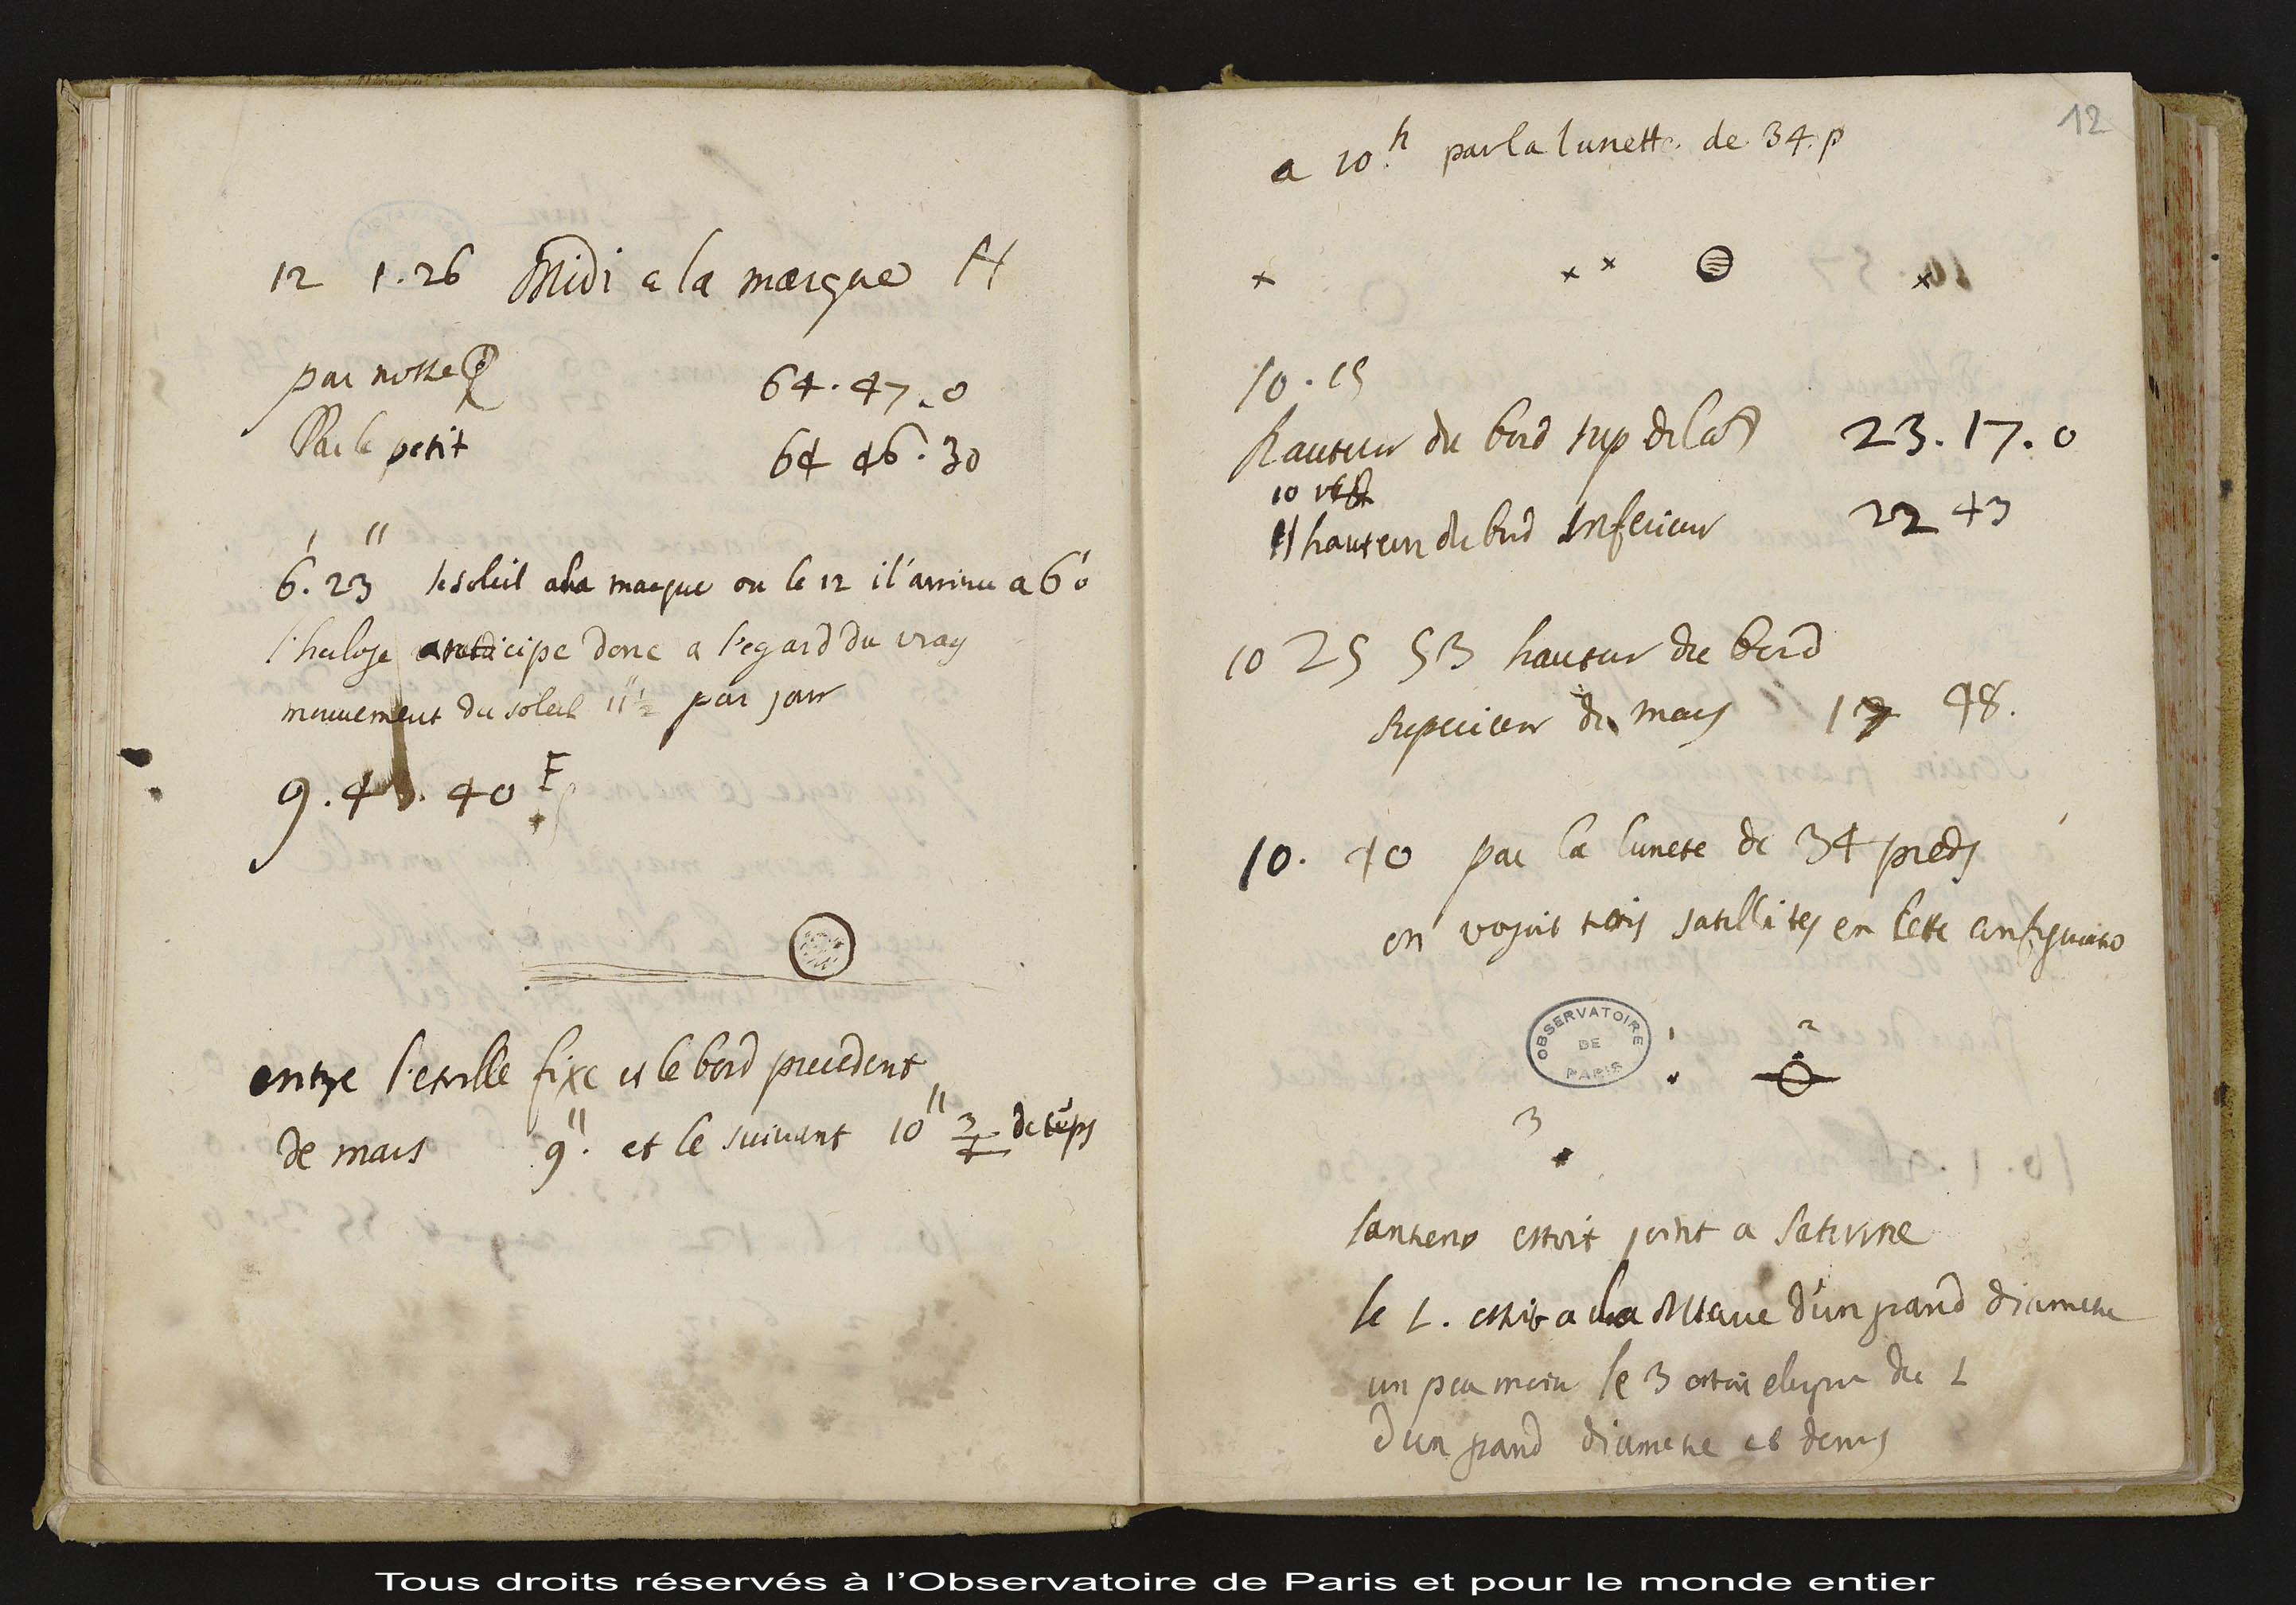 12 1.26 Midi a la marque H
par nostre
64.47.0
Par le petit
64 46.30
6'. 23" le soleil a la marque ou le 12 il arriva a 6' 0
l'horloge anticipe donc a l'egard du vray
mouvement du soleil 11" 1/2 par jour
9. 40 F
entre l'etoille fixe et le bord precedent
de mars 9". et le suivant 10" 3/4 de tẽps
12
a 10.h par la lunette de 34.p
10.15
hauteur du bord sup de la
23.17.0
10
hauteur du bord Inferieur
22 43
10 25 53 hauteur du bord
superieur de mars 17 48.
10. 40 par la lunete de 34 pieds
on voyoit trois satellites en cette configuratio
1
2
OBSERVATOIRE DE PARIS
3
l'anneau estoit joint a Saturne
le 1. estoit a la d'un grand diametre
un peu moin le 3 estoit eloigne du 1
d'un grand diametre et demy
Tous droits réservés à l'Observatoire de Paris et pour le monde entier